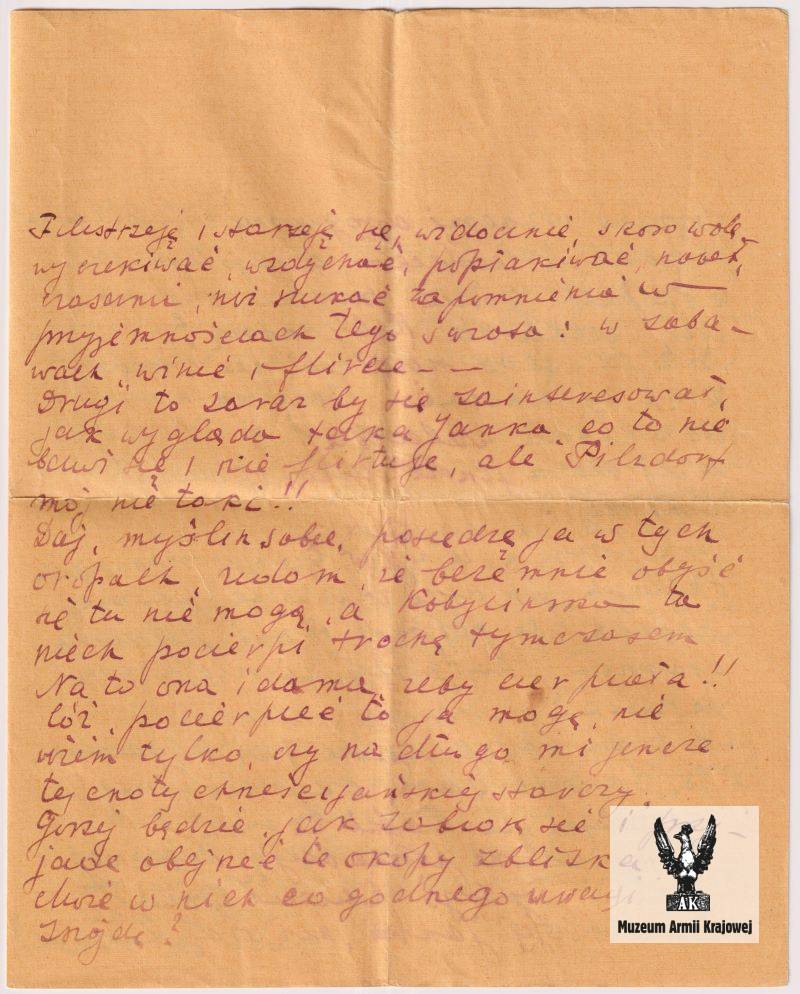 I dustrzeję i starzeję się, widocznie, skoro wolę
wyczekiwać, wzdychać, popłakiwać, nawet,
czasami, niż szukać zapomnienia w
przyjemnościach tego świata: w zaba-
wach, winie i flircie - -
Drugi to zaraz by się zainteresował,
jak wygląda taka Janka co to nie
bawi się i nie flirtuje, ale Pilzdorf
mój nie taki!!
Daj, myślin sobie, posiedzę ja w tych
okopach, udam, że beze mnie obyść
się tu nie mogą, a Kobylinska ta
niech pocierpi trochę tymczasem
Na to ona i dama, żeby cierpiała!!
Cóż, pocierpieć to ja mogę, nie
wiem tylko, czy na długo mi jeszcze
tej cnoty chrześcijańskiej starczy.
Gorzej będzie, jak zabiorę się i
jadę obejrzeć te okopy zbliska
choć w nich co godnego uwagi
znajdę?
AK
Muzeum Armii Krajowej